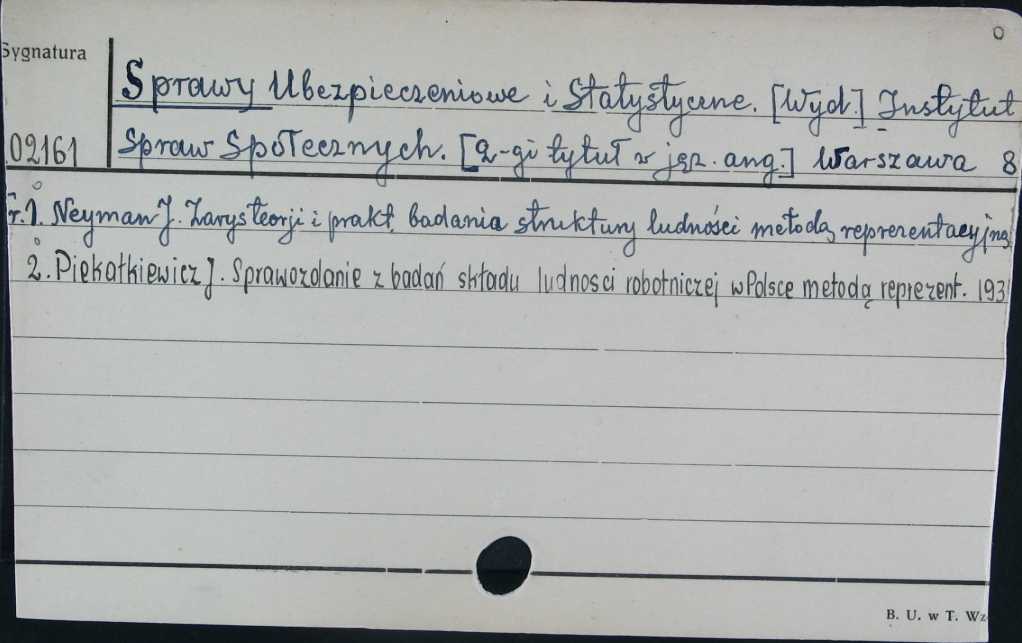 Sygnatura
Sprawy Ubezpieczeniowe i Statystyczne. [Wyd.] Instytut
02161 Spraw Społecznych. [2-gi tytuł w jęz. ang.] Warszawa 8
r.1. Neyman J. Zarys teorji i prakt. badania struktury ludności metodą reprezentacyjną
2. Piekałkiewicz J. Sprawozdanie z badań składu ludnosci robotniczej w Polsce metodą reprezent. 193
B. U. w T. Wz